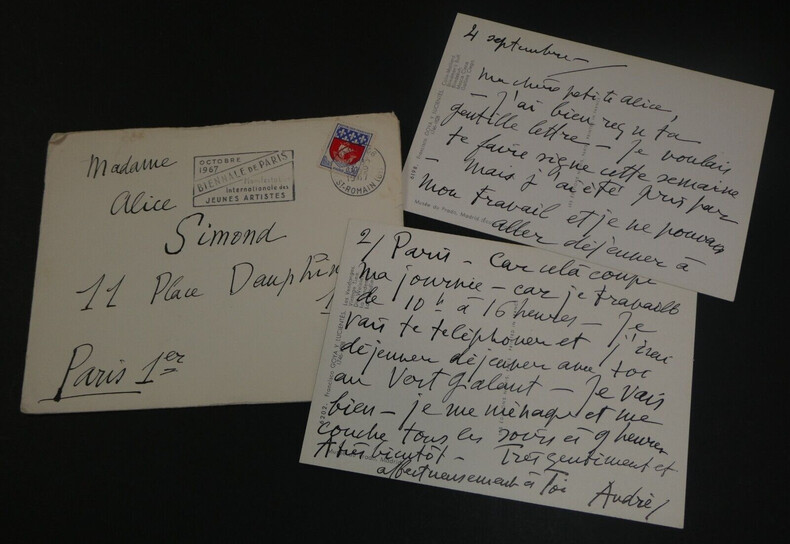 Madame
Alice
Simond
11 Place Dauphine
Paris 1er
OCTOBRE
1967
BIENNALE DE PARIS
Manifestation
internationale des
JEUNES ARTISTES
ST-ROMAIN
4 septembre –
Ma chère petite Alice,
– J'ai bien reçu ta
gentille lettre – Je voulais
te faire signe cette semaine
– Mais j'ai été pris par
mon travail et je ne pouvais
aller déjeuner à
FRANCISCO GOYA Y LUCIENTES
Museo du Prado, Madrid
2/ Paris – car cela coupe
ma journée – car je travaille
de 10h à 16 heures – Je
vais te téléphoner et j'irai
déjeuner déjeuner avec toi
au Vert Galant – Je vais
bien – je me ménage et me
couche tous les soirs à 9 heures
A très bientôt – Très gentiment et
affectueusement à Toi André
6202 Francisco GOYA Y LUCIENTES